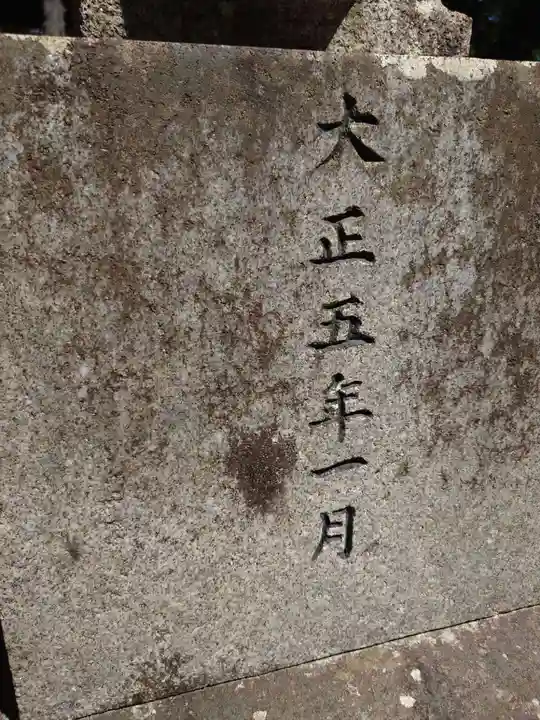 大正五年一月